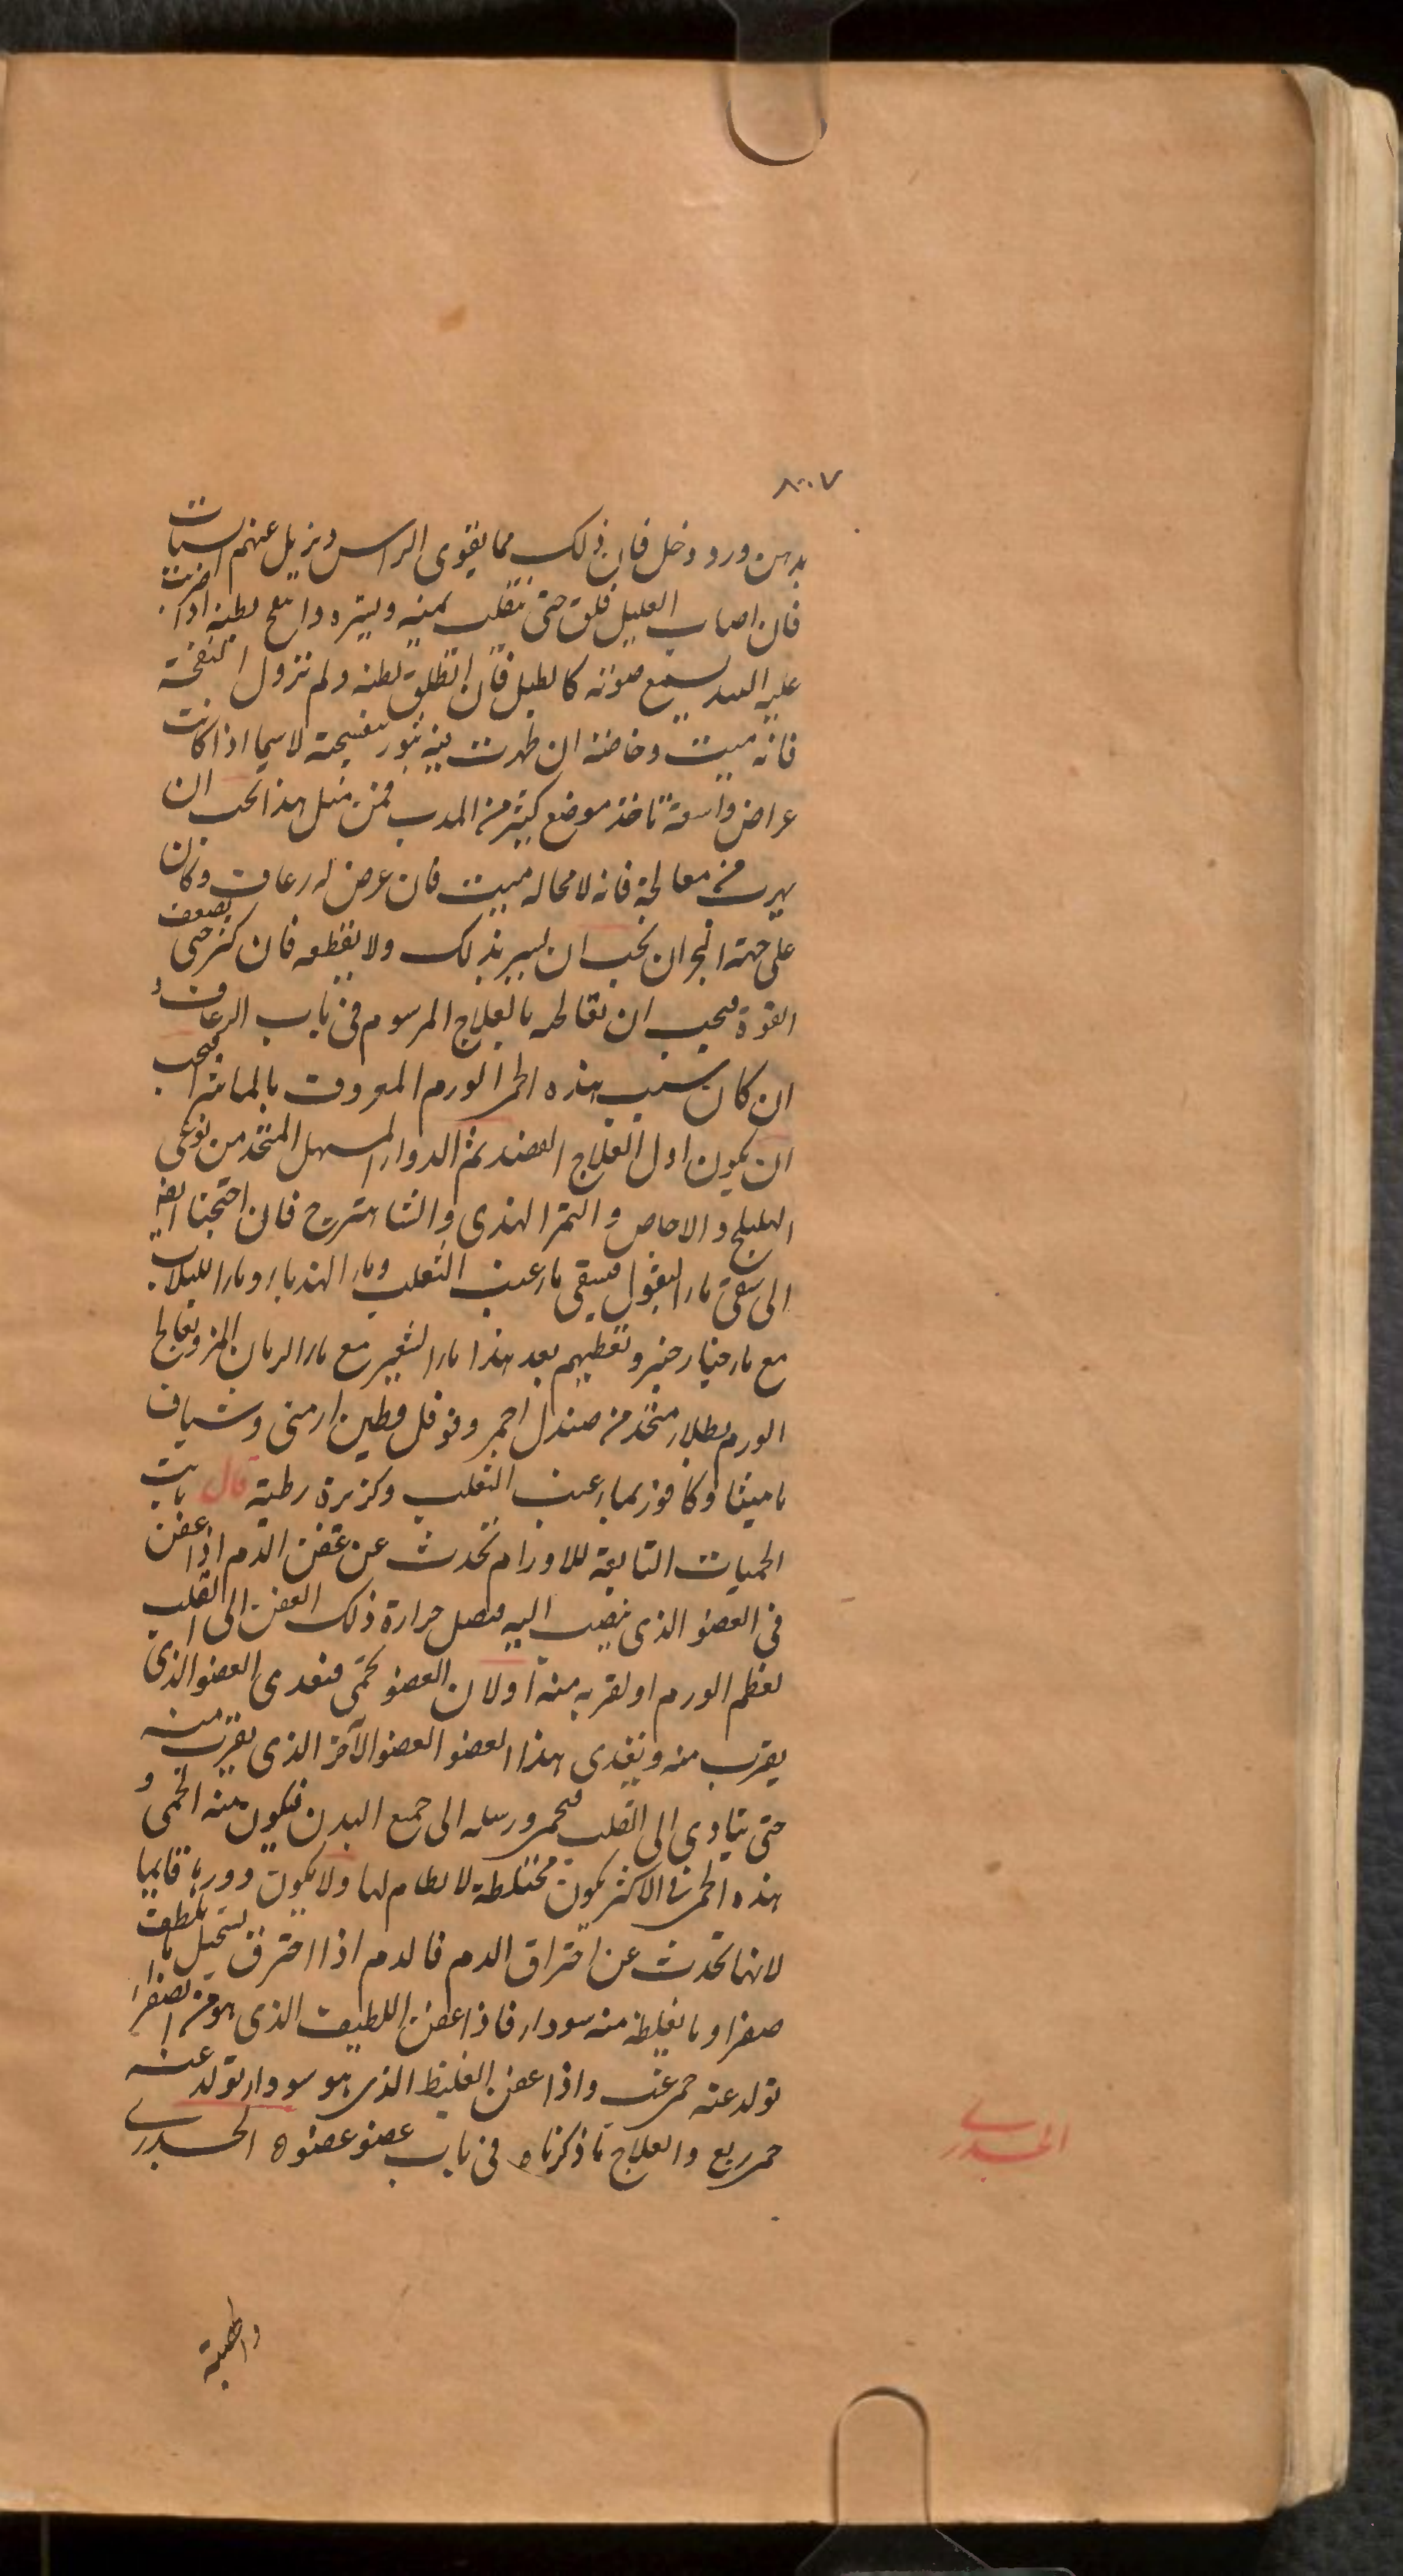 ٨٠٠٧
بدهن ورد وخل فان ذلك مما يقوى الراس ويزيل عنهم السبات
فان اصاب العليل قلق حتى يتقلب يمنه ويسره وانتفخ بطنه اذا ضربت
عليه اليد يسمع صوته كالطبل فان انطلق بطنه ولم تزول النفخة
فانه ميت وخاصة ان ظهرت فيه بثور بنفسجية لاسيما اذا كانت
عراض واسعة تاخذ موضع كثير من البدن فمن مثل هذا يجب ان
يهرب من معالجة فانه لا محاله ميت فان عرض له رعاف وكان
على جهة البحران يجب ان يسر بذلك ولا يقطعه فان كثر حتى يضعف
القوة فيجب ان تعالجه بالعلاج المرسوم فى باب الرعاف و
ان كان سبب هذه الحمى الورم المعروف بالماشرا فيجب
ان يكون اول العلاج الفصد ثم الدواء المسهل المتخذ من نوعى
الهليلج والاجاص والتمر الهندى والشاهترج فان احتجنا ايضا
الى سقى ماء البقول فيسقى ماء عنب الثعلب وماء الهندباء وماء اللبلاب
مع ماء خيار شنبر وتعطيهم بعد هذا ماء الشعير مع ماء الرمان المز وتعالج
الورم بطلاء متخذ من صندل احمر وفوفل وطين ارمنى وشياف
ماميثا وكافور بماء عنب الثعلب وكزبرة رطبة قال ثابت
الحميات التابعة للاورام تحدث عن عفن الدم اذا عفن
فى العضو الذى ينصب اليه فيصل حرارة ذلك العفن الى القلب
لعظم الورم او لقربه منه او لان العضو يحمى فيعدى العضو الذى
يقرب منه ويعدى هذا العضو العضو الآخر الذى يقرب منه
حتى يتادى الى القلب فيحمى ورسله الى جميع البدن فيكون منه الحمى و
هذه الحمى فى الاكثر يكون مختلطة لا نظام لها ولا يكون دورها قائما
لانها تحدث عن احتراق الدم فالدم اذا احترق يستحيل ما يلطف
صفرا وما يغلظ منه سوداء فاذا عفن اللطيف الذى هو من الصفرا
تولد عنه حمى غب واذا عفن الغليظ الذى هو سوداء تولد عنه
حمى ربع والعلاج ما ذكرناه فى باب عضو عضو ه الجدرى
الجدرى